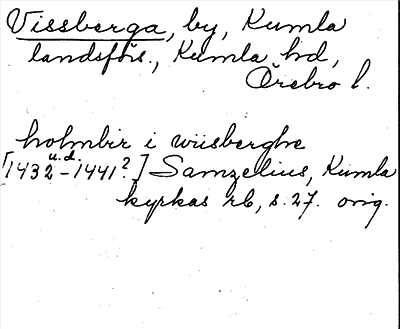 Vissberga, by, Kumla
landsförs., Kumla hd,
Örebro l.
holmbir i wiisberghe
[1432 u.d. - 1441?] Samzelius, Kumla
kyrkas rb, s. 27. orig.